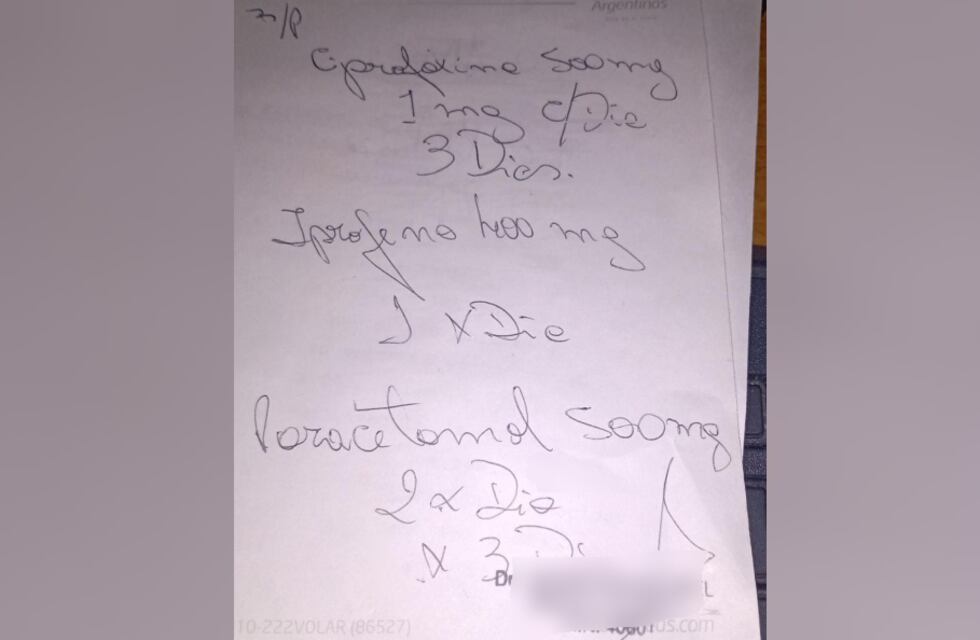 Argentinos
R/P
Ciprofoxino 500mg
1 mg c/Dia
3 Dias.
Iprofeno 400 mg
1 x Dia
Paracetamol 500mg
2 x Dia
x 3 Di
Dr
10-222VOLAR (86527)
os.com